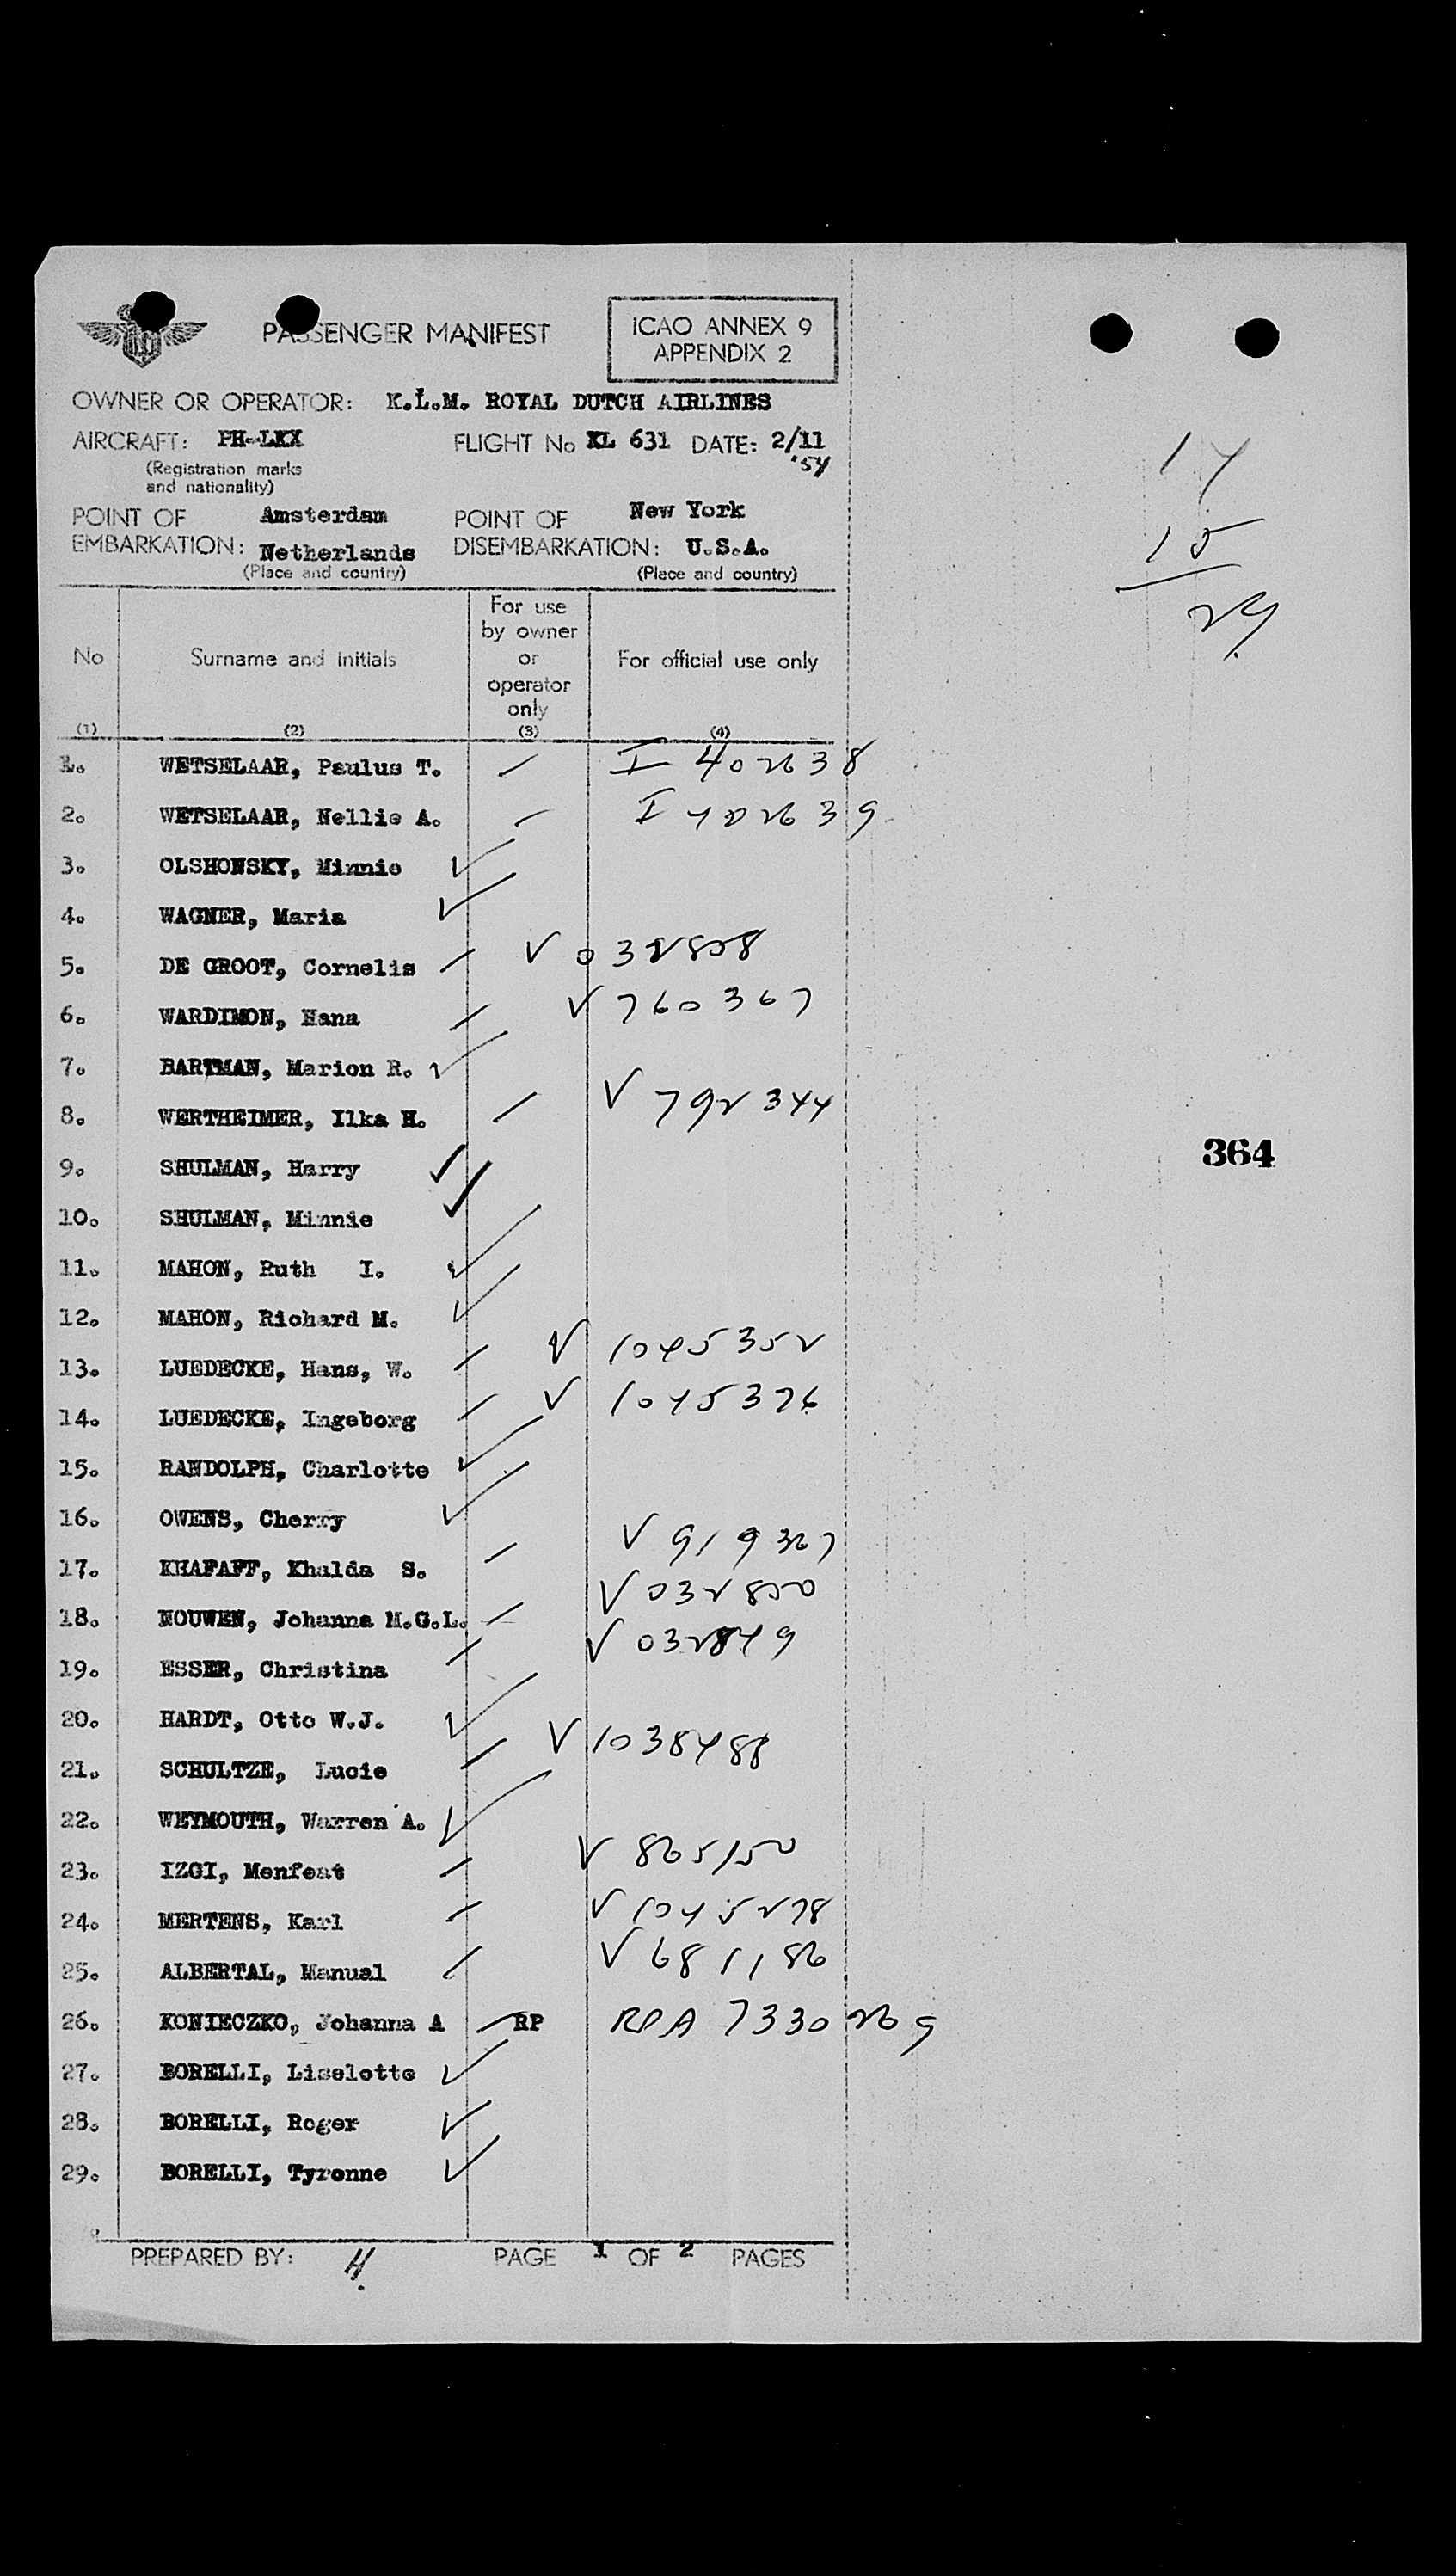 PASSENGER MANIFEST
ICAO ANNEX 9
APPENDIX 2
OWNER OR OPERATOR: K.L.M. ROYAL DUTCH AIRLINES
AIRCRAFT: PH-LKX FLIGHT No KL 631 DATE: 2/11 '54
(Registration marks
and nationality)
POINT OF EMBARKATION: Amsterdam Netherlands
(Place and country)
POINT OF DISEMBARKATION: New York U.S.A.
(Place and country)
14
15
29
No Surname and initials For use by owner or operator only For official use only
(1) (2) (3) (4)
1. WETSELAAR, Paulus T. I 402638
2. WETSELAAR, Nellie A. I 402639
3. OLSHONSKY, Minnie
4. WAGNER, Maria
5. DE GROOT, Cornelis V 032808
6. WARDIMON, Hana V 760367
7. BARTMAN, Marion R.
8. WERTHEIMER, Ilka H. V 792344
9. SHULMAN, Harry
364
10. SHULMAN, Minnie
11. MAHON, Ruth I.
12. MAHON, Richard M.
13. LUEDECKE, Hans, W. V 1045352
14. LUEDECKE, Ingeborg V 1045376
15. RANDOLPH, Charlotte
16. OWENS, Cherry
17. KHAFAFF, Khalda S. V 919367
18. NOUWEN, Johanna M.G.L. V 032850
19. ESSER, Christina V 032849
20. HARDT, Otto W.J.
21. SCHULTZE, Lucie V 1038488
22. WEYMOUTH, Warren A.
23. IZGI, Menfeat V 865150
24. MERTENS, Karl V 1045278
25. ALBERTAL, Manual V 681186
26. KONIECZKO, Johanna A RP RPA 7330269
27. BORELLI, Liselotte
28. BORELLI, Roger
29. BORELLI, Tyronne
PREPARED BY: H. PAGE 1 OF 2 PAGES